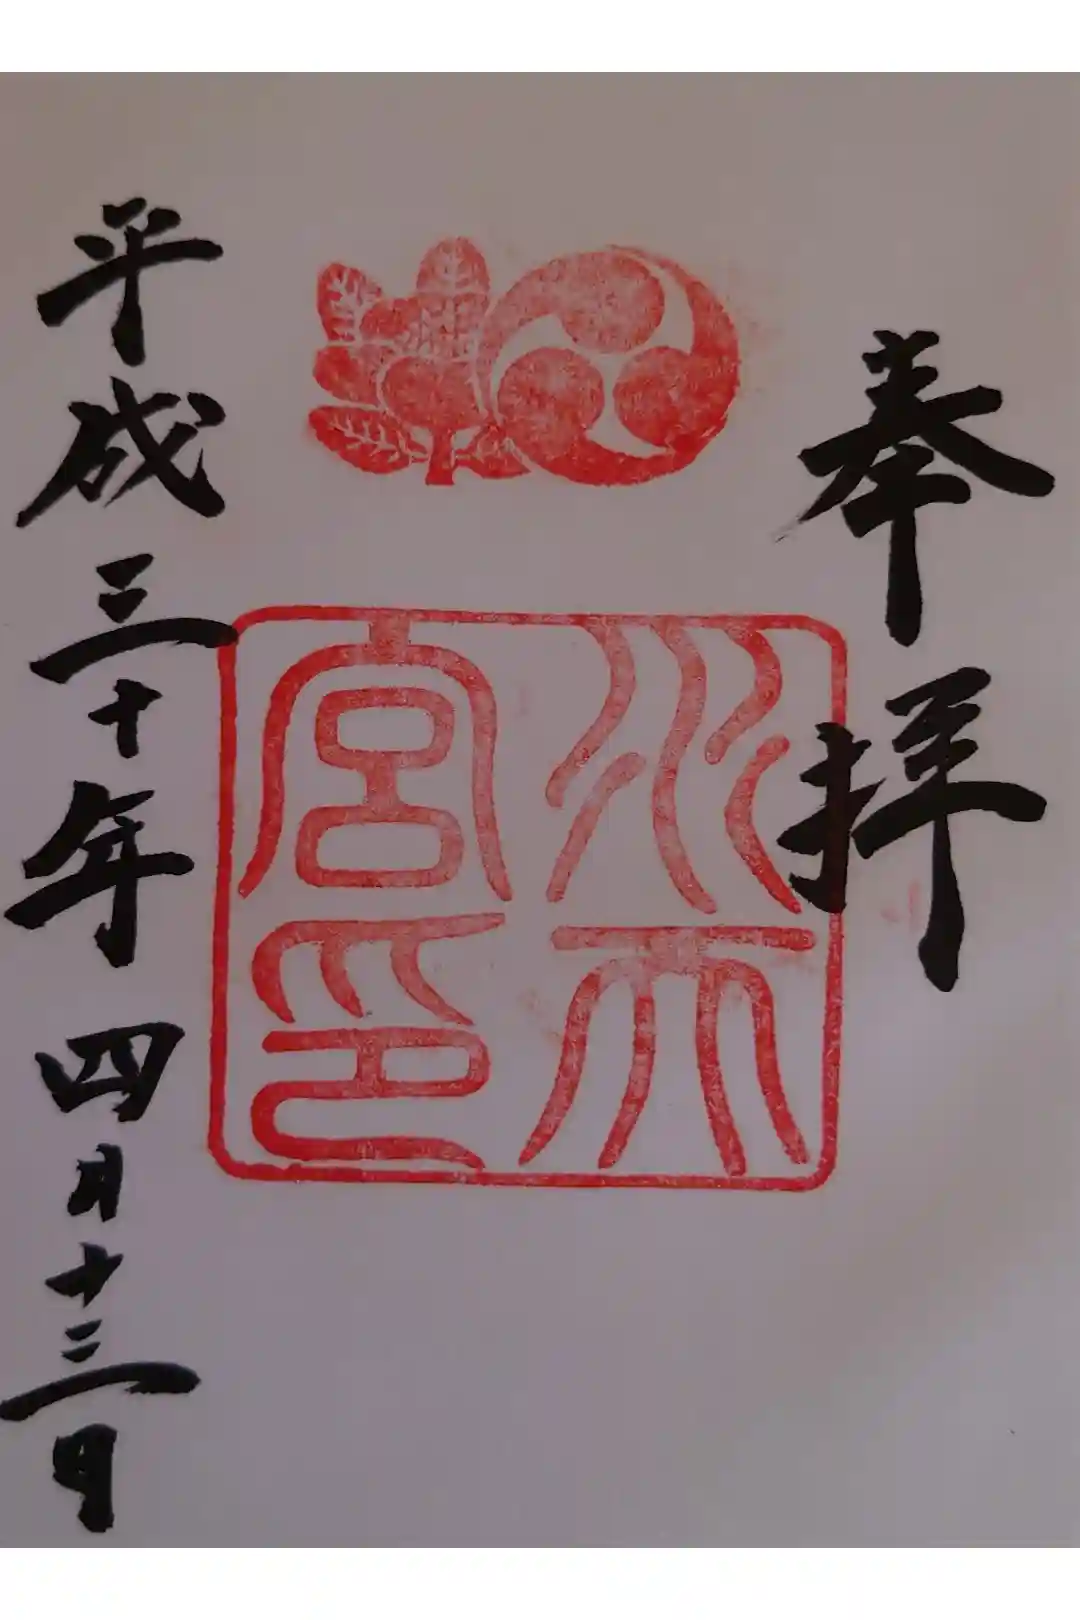 奉拝
水天
宮印
平成三十年四月十三日